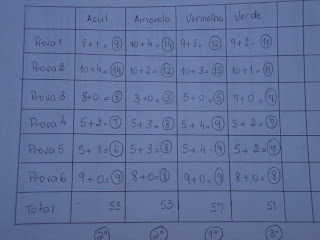 Azul Amarela Vermelha Verde
Prova 1 8+1=9 10+4=14 9+3=12 9+2=11
Prova 2 10+4=14 10+2=12 10+3=13 10+1=11
Prova 3 8+0=8 3+0=3 5+0=5 7+0=7
Prova 4 5+2=7 5+3=8 5+4=9 5+2=7
Prova 5 5+1=6 5+3=8 5+4=9 5+2=7
Prova 6 9+0=9 8+0=8 9+0=9 8+0=8
Total 53 53 57 51
2º 2º 1º 3º